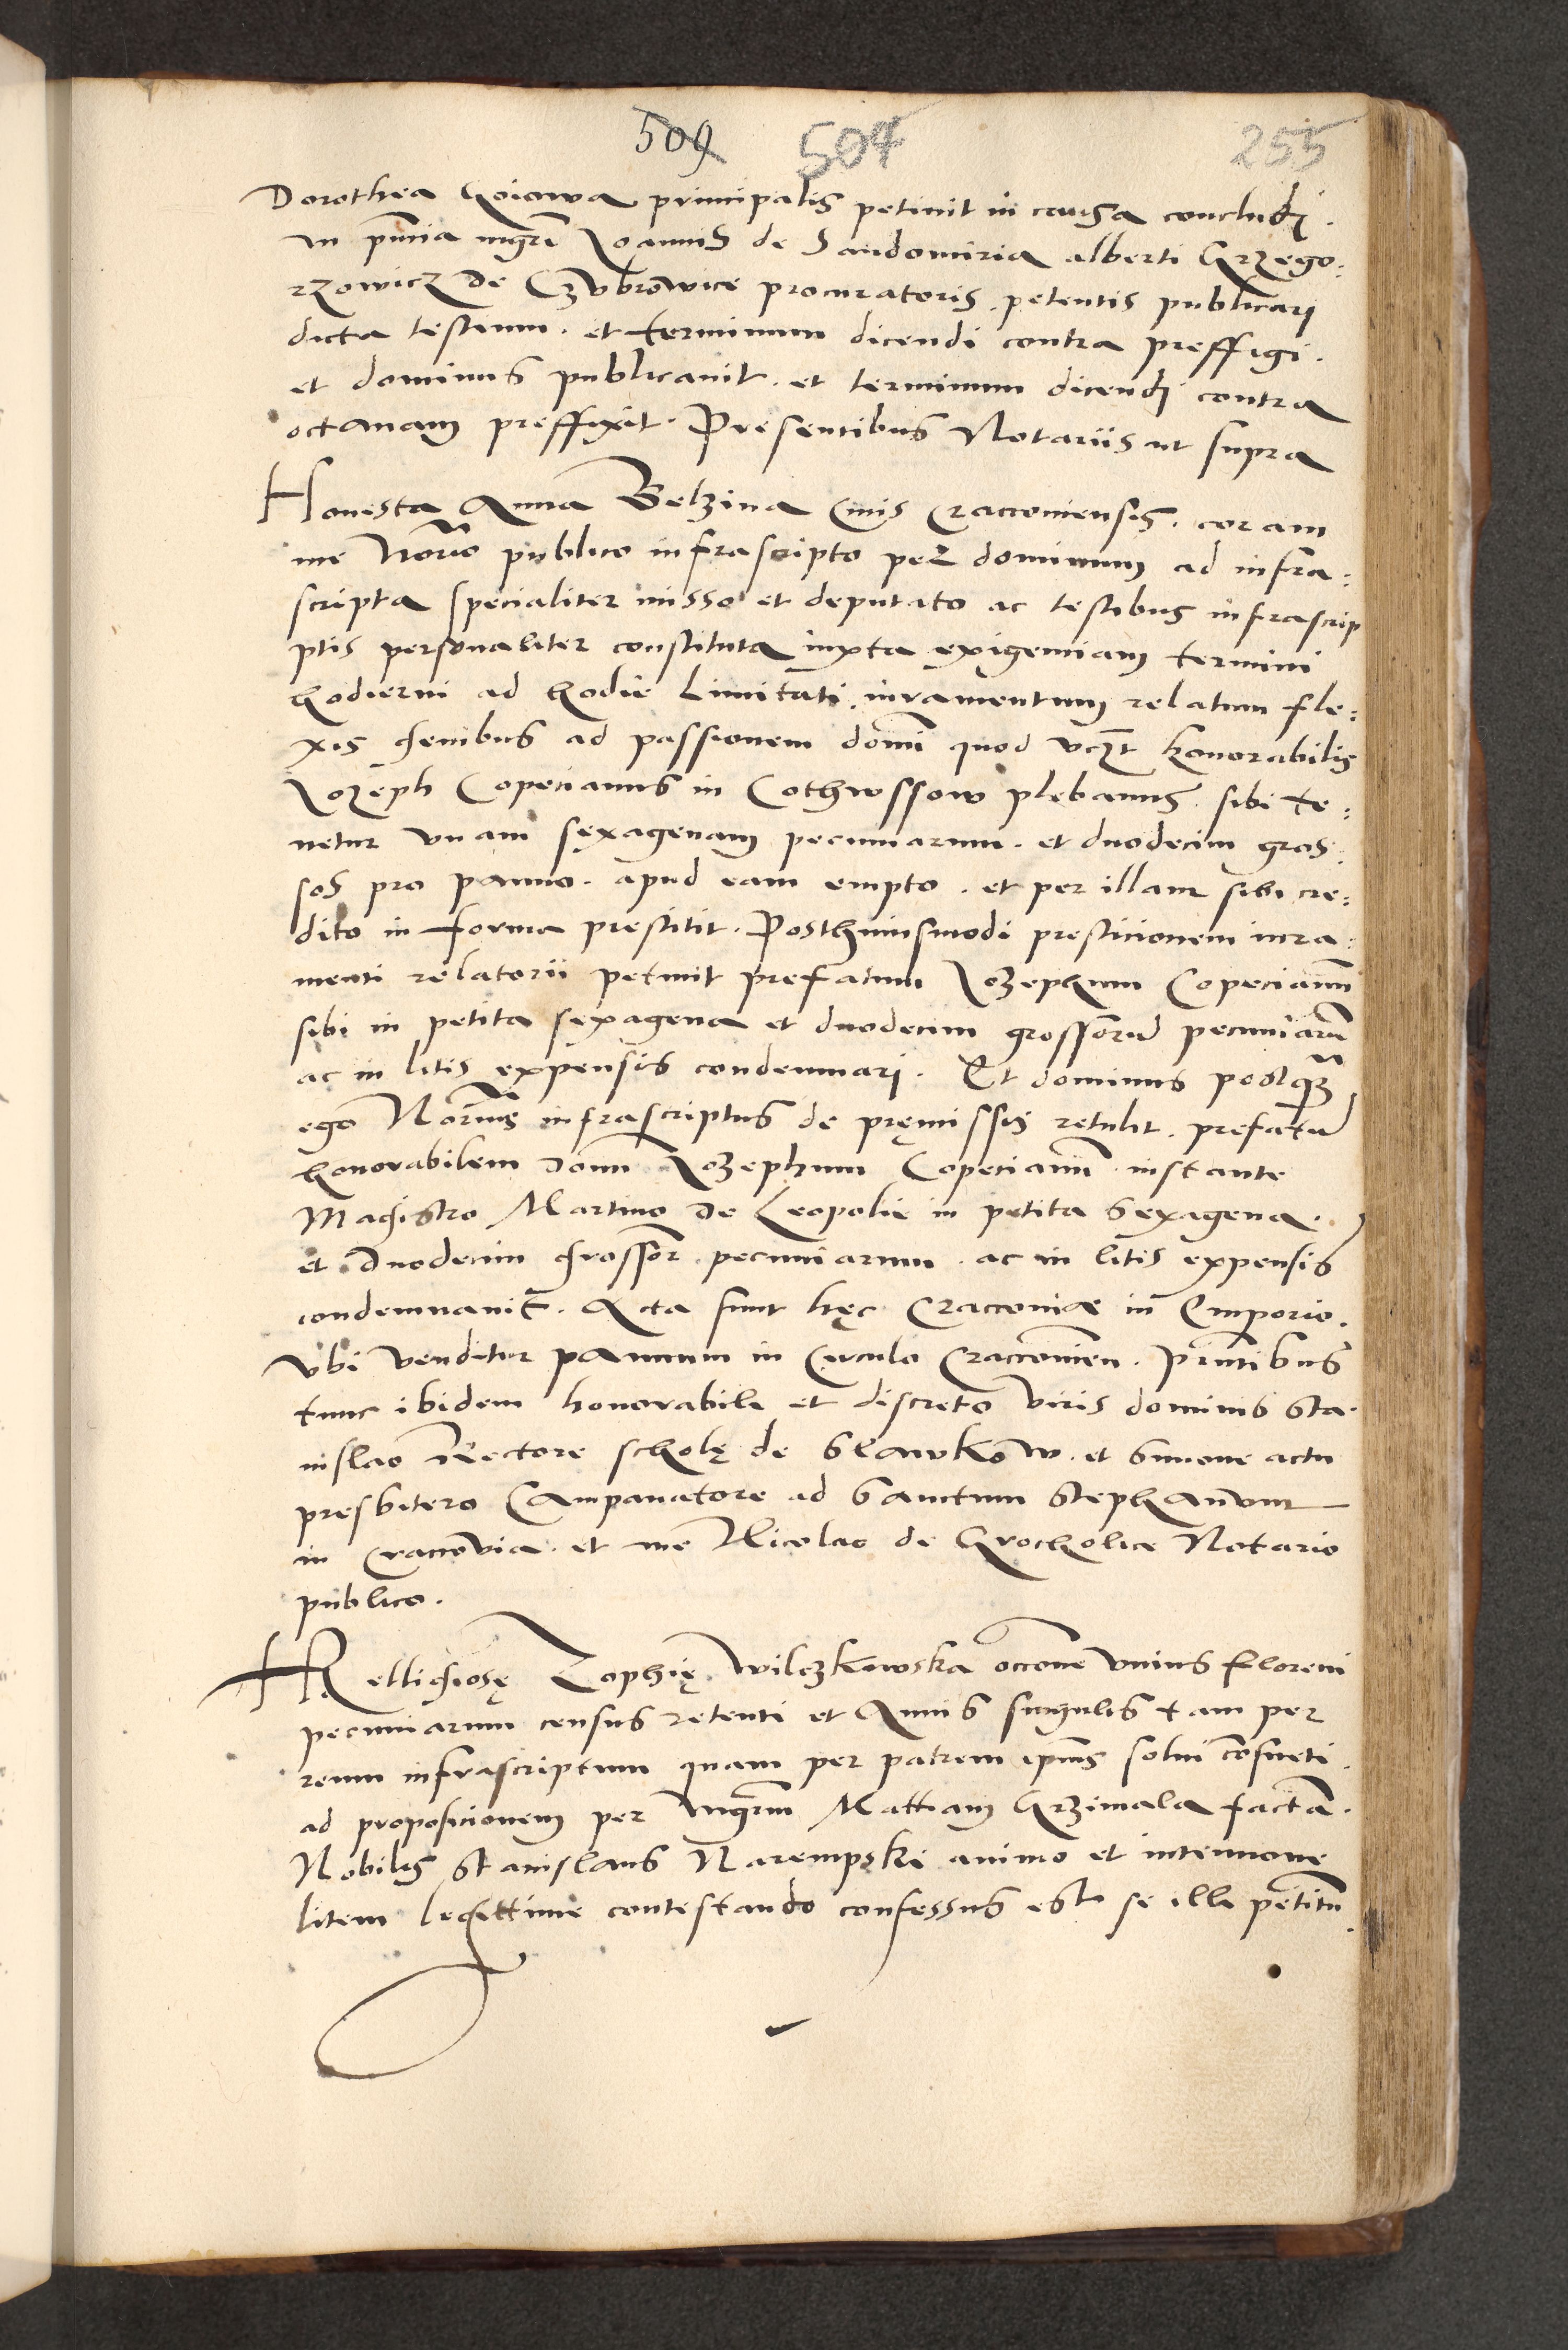 509 504 255
Dorothea Goiowa principalis petiuit in causa concludi.
in pñtia mgrĩ Joannis de Sandomiria alberti Grzego:
rzowicz de Czvbrowice procuratoris. petentis publicari
dicta testium. et terminum dicendi contra preffigi.
et dominus publicauit. et terminum dicendi contra
octauam preffixit. Presentibus Notariis ut supra
Honesta Anna Belzina Ciuis Cracouiensis. coram
me Norio publico infrascripto per dominum ad infra:
scripta specialiter misso et deputato ac testibus infrascrip
ptis personaliter constituta iuxta exigentiam termini
hodierni ad hodie Limitati. iuramentum relatum fle:
xis genibus ad passionem domi quod vczt honorabilis
Jozeph Copecianus in Cothwssow plebanus. sibi te:
netur vnam sexagenam pecuniarum. et duodecim gros:
sos pro panno. apud eam empto. et per illam sibi cre:
dito in forma prestitit. Posthuiusmodi presticionem iura:
menti relatorii petiuit prefatum Jozephum Copecianũ
sibi in petita sexagena et duodecim grossorũ pecuniarũ
ac in litis expensis condemnari. Et dominus postqʒ
ego Norius infrascriptus de pręmissis retulit. prefatũ
honorabilem domi Jozephum Copecianũ instante
Magistro Martino de Leopolie in petita sexagena.
et Duodecim grossor pecuniarum. ac in litis expensis
condemnauit. Acta sunt hęc Cracouiae in Emporio.
vbi venditur pannum in Circulo Cracouien. Pñtibus
tunc ibidem honorabile et discreto viris dominis Sta:
nislao Rectore scholę de Slawkow. et Simone actu
presbitero Campanatore ad Sanctum Stephanum
in Cracovia. et me Nicolao de Grocholice Notario
publico.
Relligiosę Zophię Wilczkowska occone vnius floreni
pecuniarum census retenti et Annis singulis tam per
reum infrascriptum quam per patrem ipius solui cosueti.
ad proposicionem per mgrum Mathiam Grzimala factã.
Nobilis Stanislaus Narempski animo et intentione
litem legittime contestando confessus est se illi petitũ